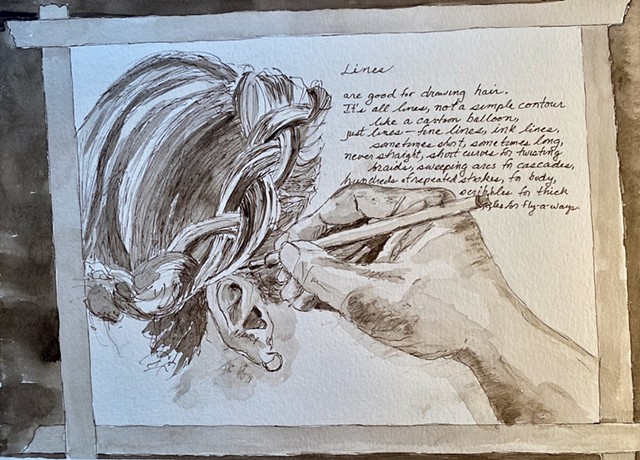 Lines
are good for drawing hair.
It's all lines, not a simple contour
like a cartoon balloon,
just lines — fine lines, ink lines,
sometimes short, sometimes long,
never straight, short curves for twisting
braids, sweeping arcs in cascades,
hundreds of repeated strokes, for body,
scribbles for thick
for fly-a-ways.